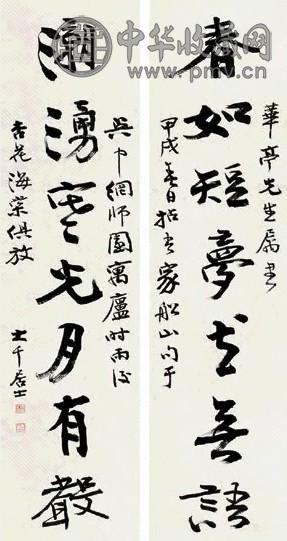 中华收藏网
www.pmv.cn
華亭先生属書
春如短夢花無語
甲戌春日拈吾家船山句于
吳中網師園寓廬時雨後
湧寒光月有聲
杏花海棠俱放
大千居士